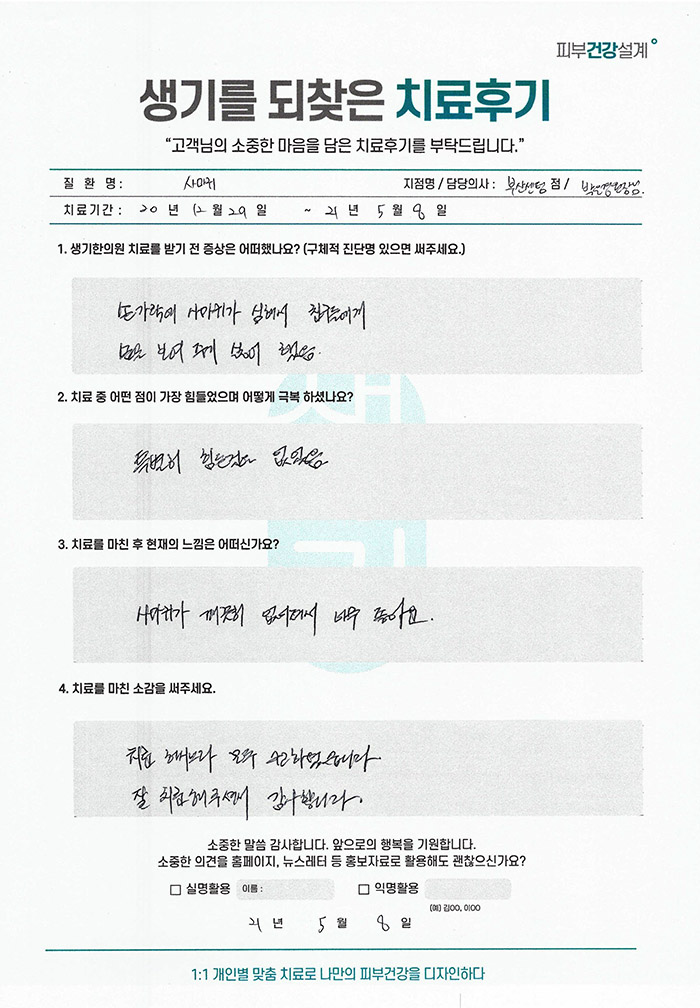 피부건강설계
생기를 되찾은 치료후기
“고객님의 소중한 마음을 담은 치료후기를 부탁드립니다.”
질 환 명 : 사마귀 지점명 / 담당의사 : 부산센텀 점 / 원장님.
치료기간 : 20 년 12 월 29 일 ~ 21 년 5 월 8 일
1. 생기한의원 치료를 받기 전 증상은 어떠했나요? (구체적 진단명 있으면 써주세요.)
손가락에 사마귀가 심해서 친구들에게
보여 주기 싫어 했음.
2. 치료 중 어떤 점이 가장 힘들었으며 어떻게 극복 하셨나요?
특별히 힘든건 없었음
3. 치료를 마친 후 현재의 느낌은 어떠신가요?
사마귀가 깨끗히 없어져서 너무 좋아요.
4. 치료를 마친 소감을 써주세요.
치료 해주느라 모두 수고하였습니다.
잘 치료해주셔서 감사합니다.
소중한 말씀 감사합니다. 앞으로의 행복을 기원합니다.
소중한 의견을 홈페이지, 뉴스레터 등 홍보자료로 활용해도 괜찮으신가요?
실명활용 이름 : 익명활용
(예) 김OO, 이OO
21 년 5 월 8 일
1:1 개인별 맞춤 치료로 나만의 피부건강을 디자인하다